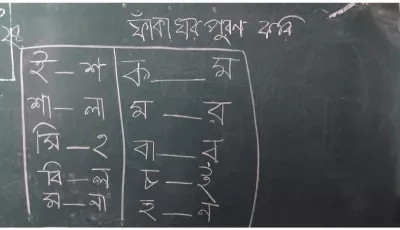 ফাঁকা ঘর পুরণ করি
ই — শ ক — ম
শা — লা ম — র
মি — ২ বা — ব
বি — ল চ — ই
ম — যা হ — য